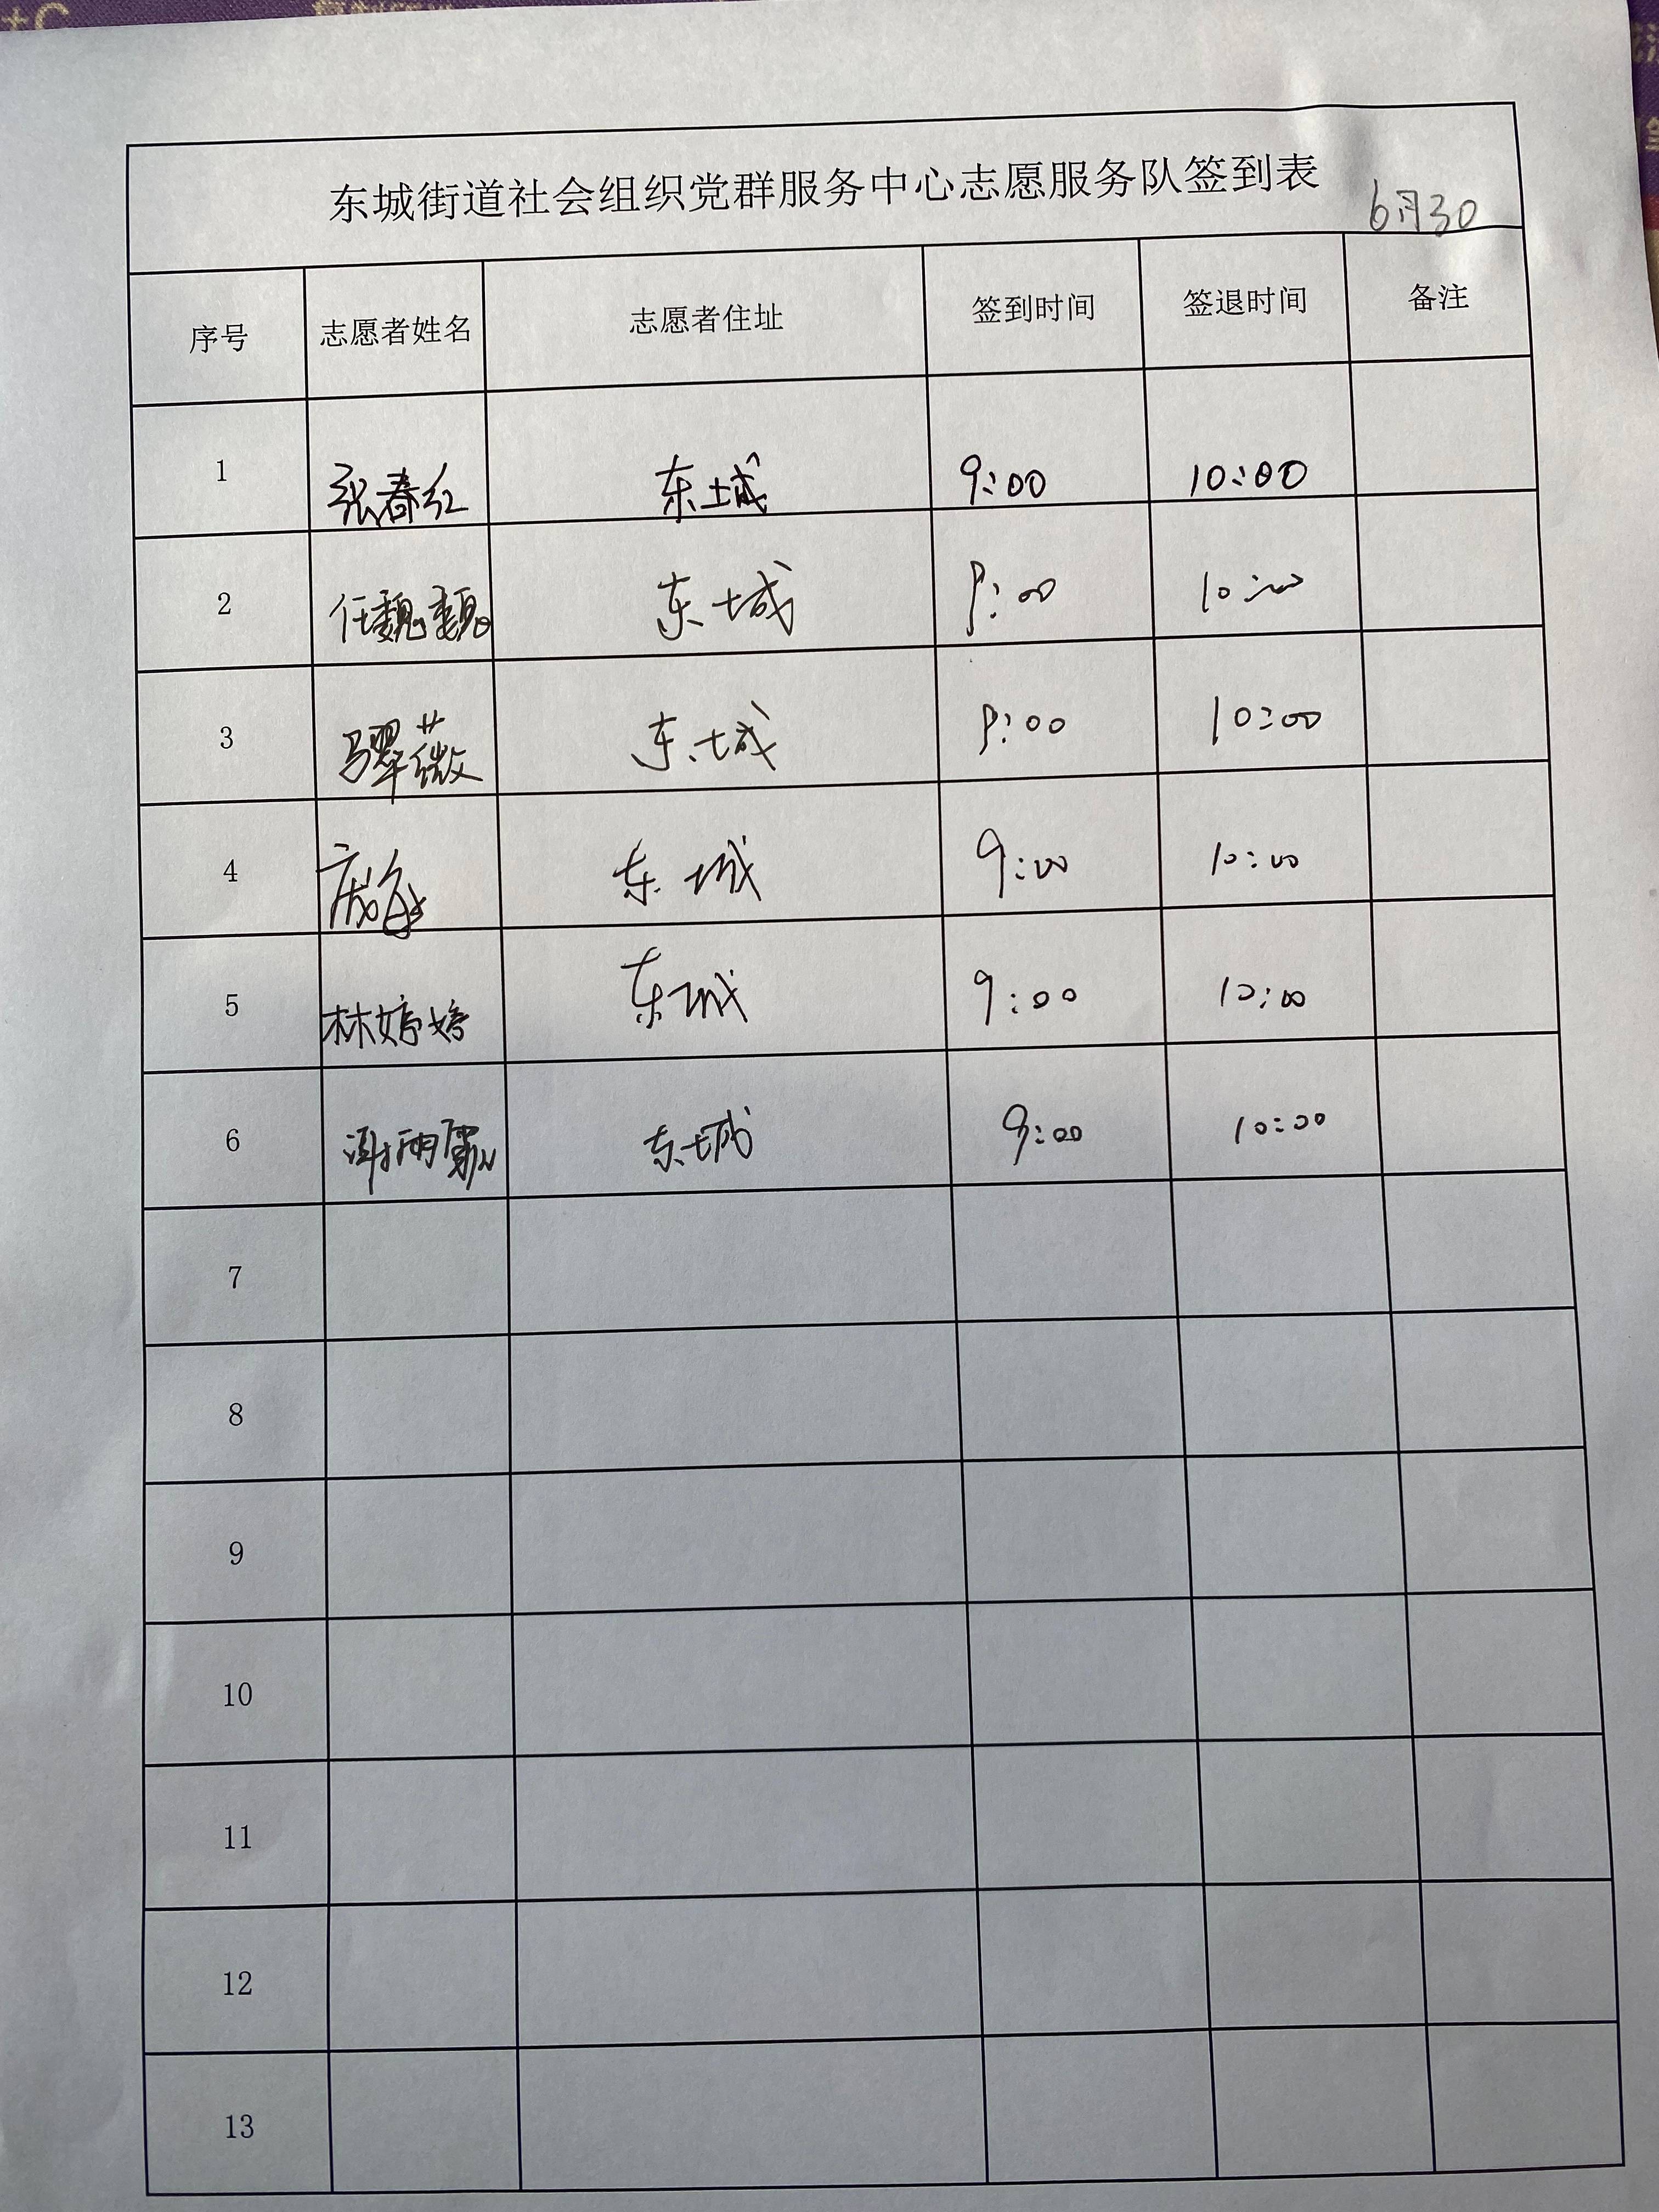 东城街道社会组织党群服务中心志愿服务队签到表
6月30
序号 志愿者姓名 志愿者住址 签到时间 签退时间 备注
1 张春红 东城 9:00 10:00
2 任魏魏 东城 9:00 10:00
3 马翠薇 东城 9:00 10:00
4 东城 9:00 10:00
5 林婷婷 东城 9:00 10:00
6 谢雨 东城 9:00 10:00
7
8
9
10
11
12
13